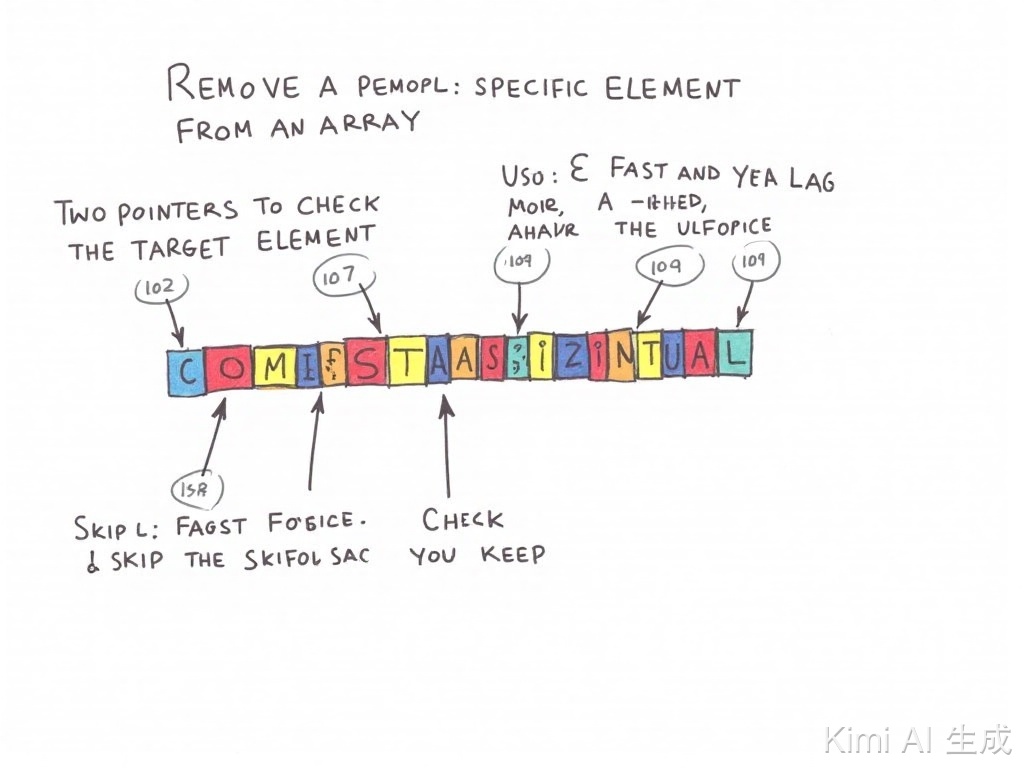 REMOVE A PEMOPL: SPECIFIC ELEMENT
FROM AN ARRAY
TWO POINTERS TO CHECK
THE TARGET ELEMENT
USO: Ɛ FAST AND YEA LAG
MOIR, A
AHAVR THE ULFOPICE
102
107
109
109
109
C O M I S T A A S i Z i N T U A L
SKIP L: FAGST FOBICE.
& SKIP THE SKIFOL SAC
CHECK
YOU KEEP
Kimi AI 生成